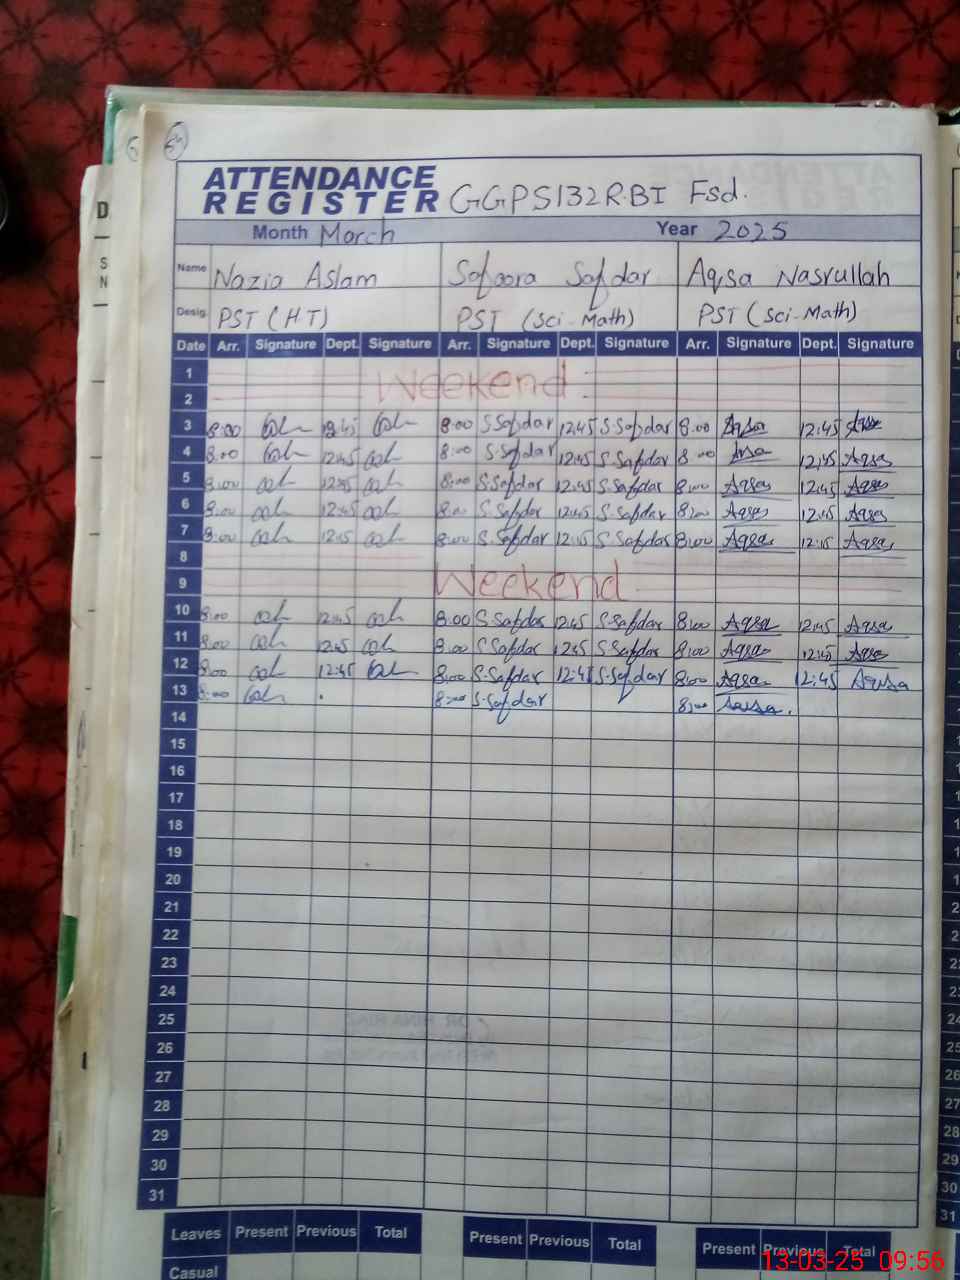 ATTENDANCE
REGISTER GGPS132R.BI Fsd.
Month March Year 2025
Name Nazia Aslam Safoora Safdar Aqsa Nasrullah
Desig. PST (H.T) PST (Sci-Math) PST (Sci-Math)
Date Arr. Signature Dept. Signature Arr. Signature Dept. Signature Arr. Signature Dept. Signature
1
Weekend
2
3 8:00 12:45 8:00 S.Safdar 12:45 S.Safdar 8:00 Aqsa 12:45 Aqsa
4 8:00 12:45 8:00 S.Safdar 12:45 S.Safdar 8:00 12:45 Aqsa
5 8:00 12:45 8:00 S.Safdar 12:45 S.Safdar 8:00 Aqsa 12:45 Aqsa
6 8:00 12:45 8:00 S.Safdar 12:45 S.Safdar 8:00 Aqsa 12:45 Aqsa
7 8:00 12:15 8:00 S.Safdar 12:15 S.Safdar 8:00 Aqsa 12:15 Aqsa
8
Weekend
9
10 8:00 12:45 8:00 S.Safdar 12:45 S.Safdar 8:00 Aqsa 12:45 Aqsa
11 8:00 12:45 8:00 S.Safdar 12:45 S.Safdar 8:00 Aqsa 12:45 Aqsa
12 8:00 12:45 8:00 S.Safdar 12:45 S.Safdar 8:00 Aqsa 12:45 Aqsa
13 8:00 8:00 S.Safdar 8:00
14
15
16
17
18
19
20
21
22
23
24
25
26
27
28
29
30
31
Leaves Present Previous Total Present Previous Total Present Previous Total
Casual
13-03-25 09:56